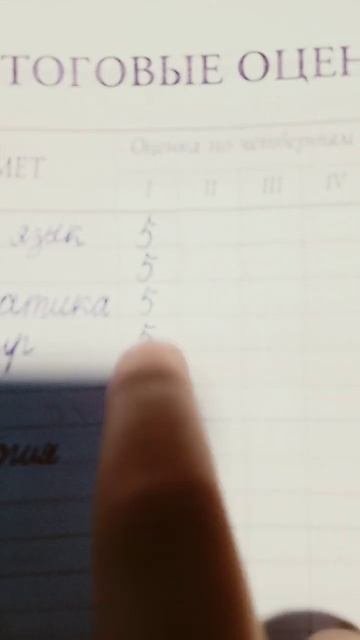 ТОГОВЫЕ ОЦЕН
МЕТ Оценка по четвертям
I II III IV
язык 5
5
атика 5
5